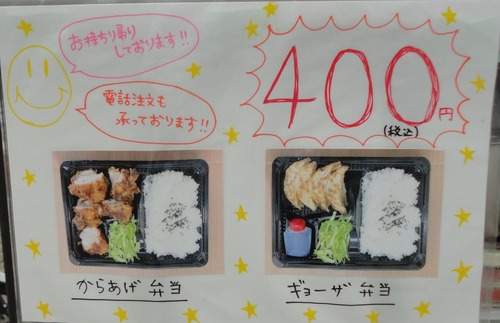 お持ち帰り
しております!!
電話注文も
承っております!!
400円
(税込)
からあげ 弁当
ギョーザ 弁当